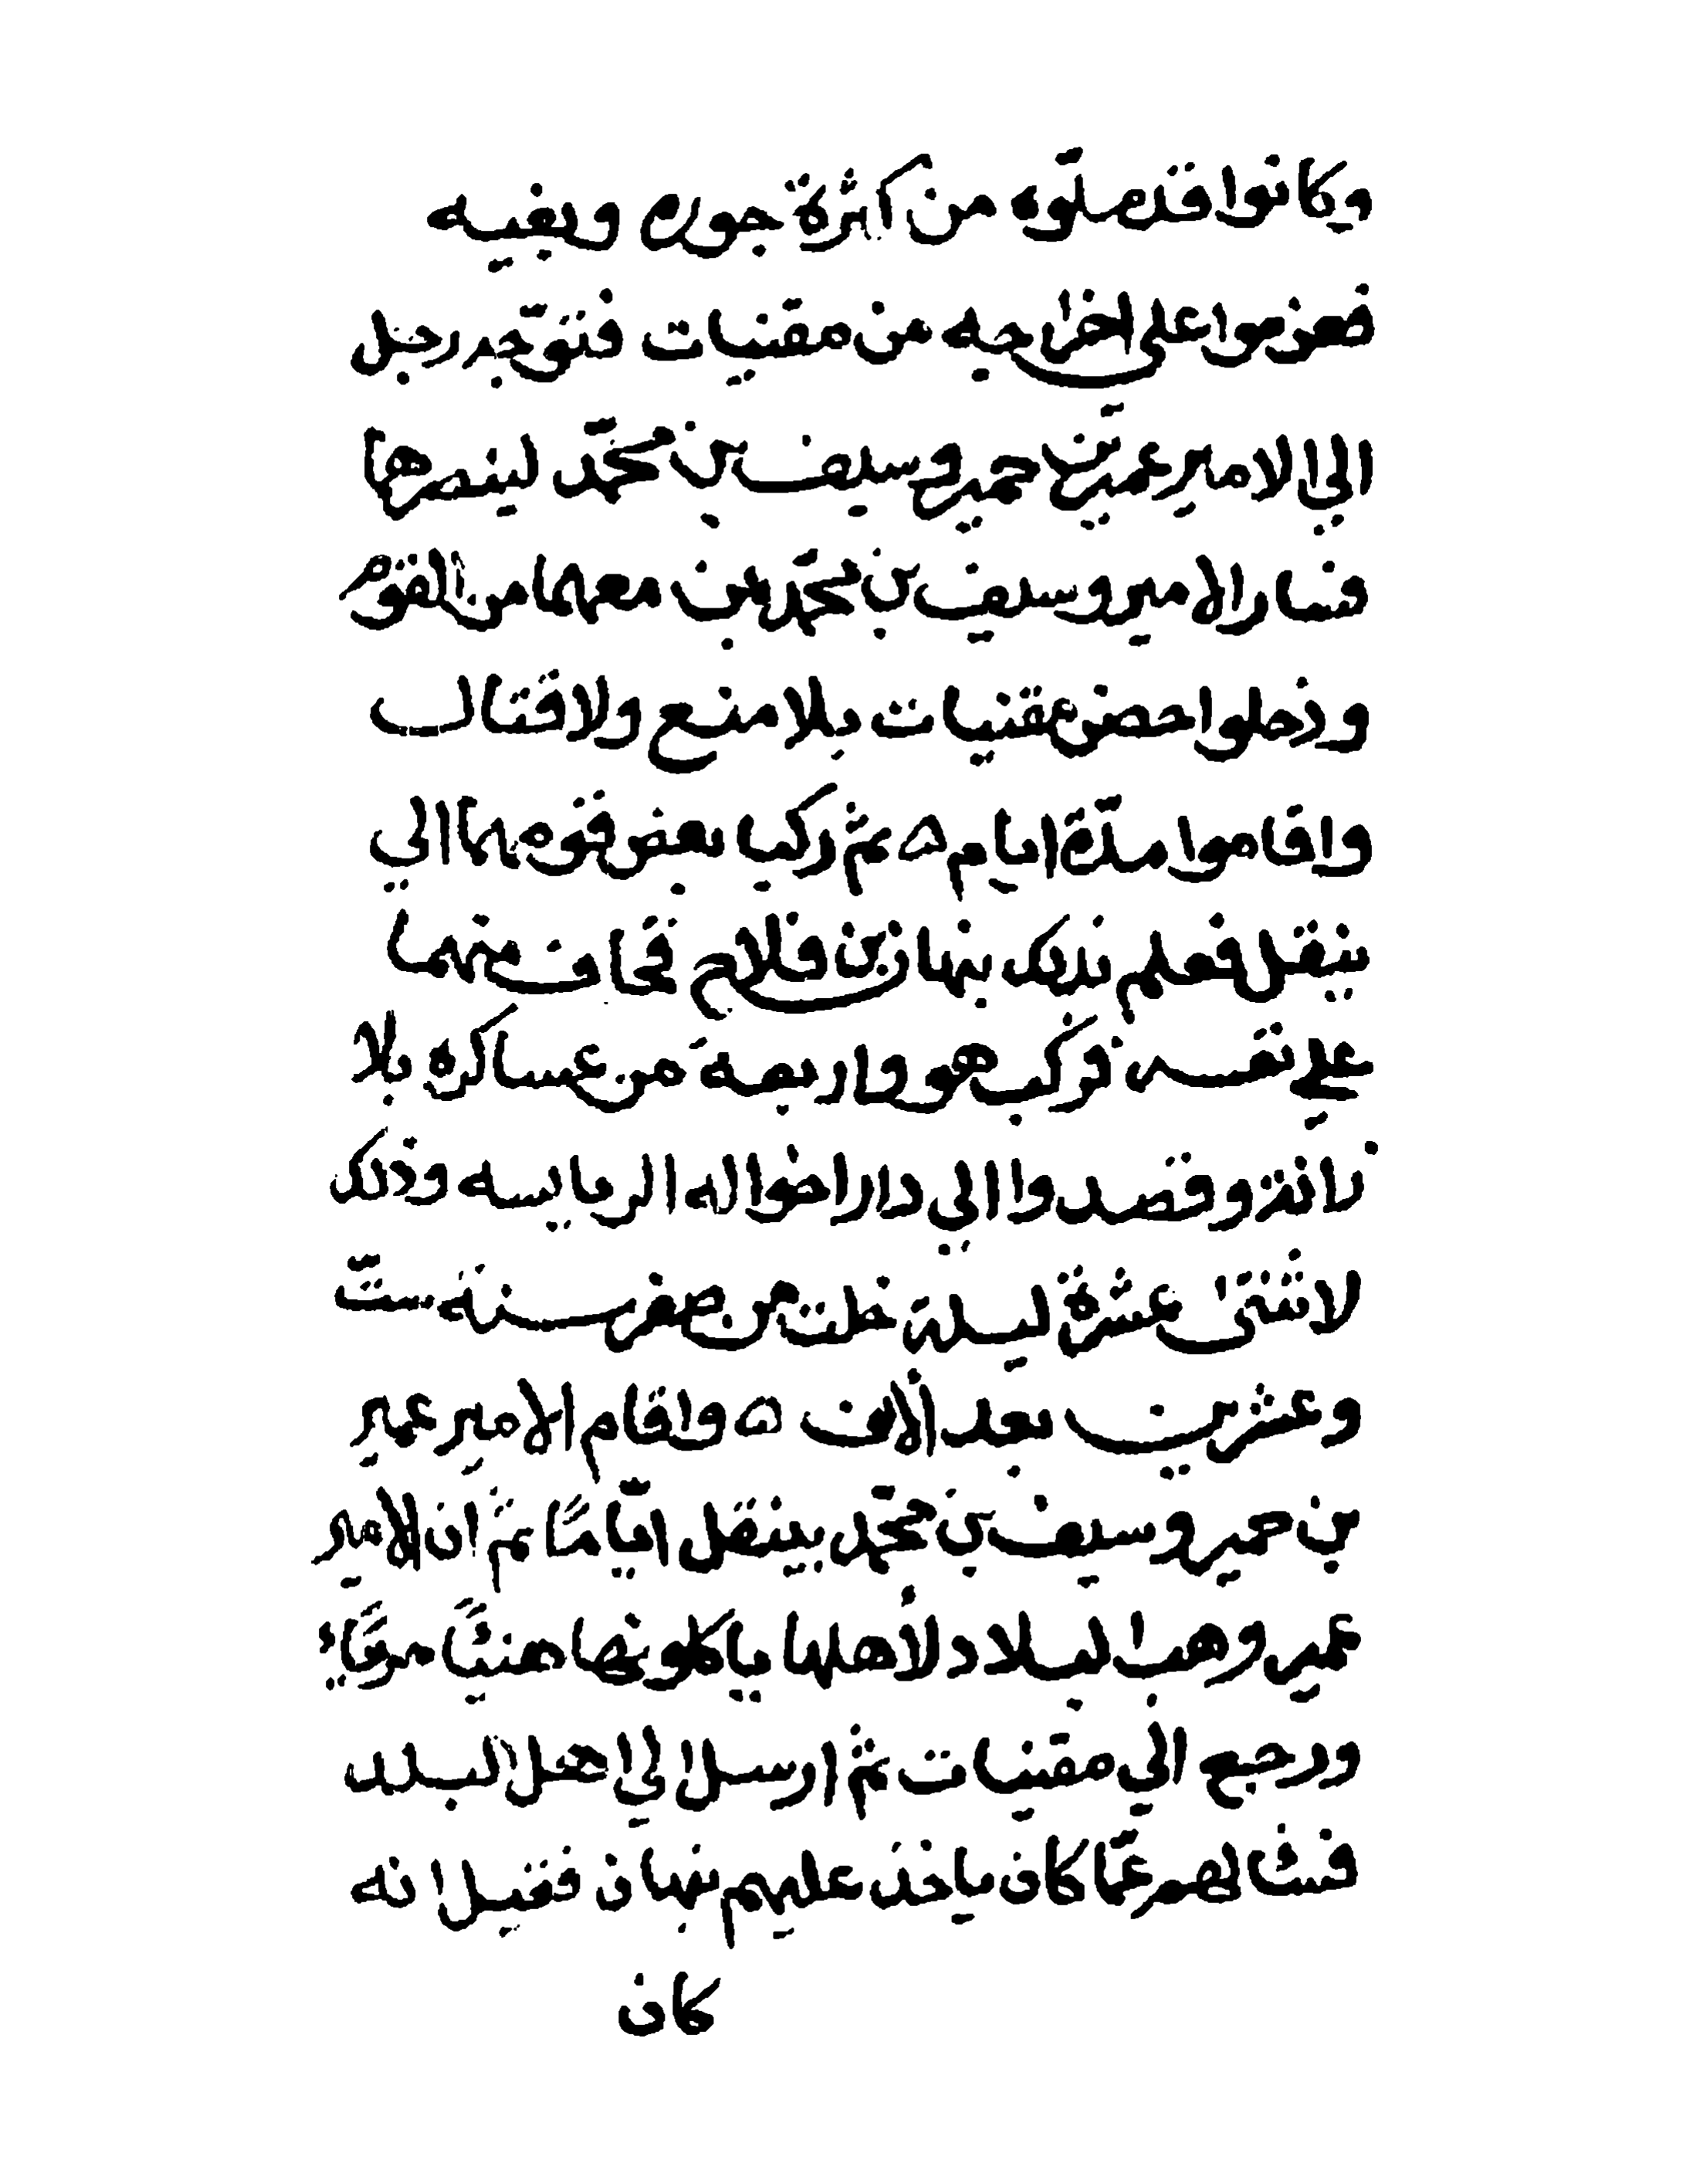 وكانوا قد ملّوه من كثرة جوره وبغيه
فعزموا على اخراجه من مقنيات فتوجّه رجل
الي الامير عمير بن حمير وسيف بن محمّد لينصرها
فسار الامير وسيف بن محمّد بمن معهما من القوم
ودخلوا حصن مقنيات بلا منع ولا قتال
واقاموا مدّة ايام ۵ ثم ركبا بعض قومهما الي
ينقل فعلم بذلك نبهان بن فلاح فخاف منهما
علي نفسه فركب هو واربعة من عساكره بلا
زانة وقصدوا الي دار اخواله الريايسه وذلك
لاثنتى عشرة ليلة خلت من صفر سنة ستّ
وعشرين بعد الألف ۵ واقام الامير عمير
بن حمير وسيف بن محمّد بينقل ايّامًا ثم ان الامير
عمير وهب البلاد لأهلها ياكلونها هنيّا مريّا
ورجع الي مقنيات ثم ارسل الي اهل البلد
فسالهم عمّا كان ياخذ عليهم نبهان فقيل انه
كان